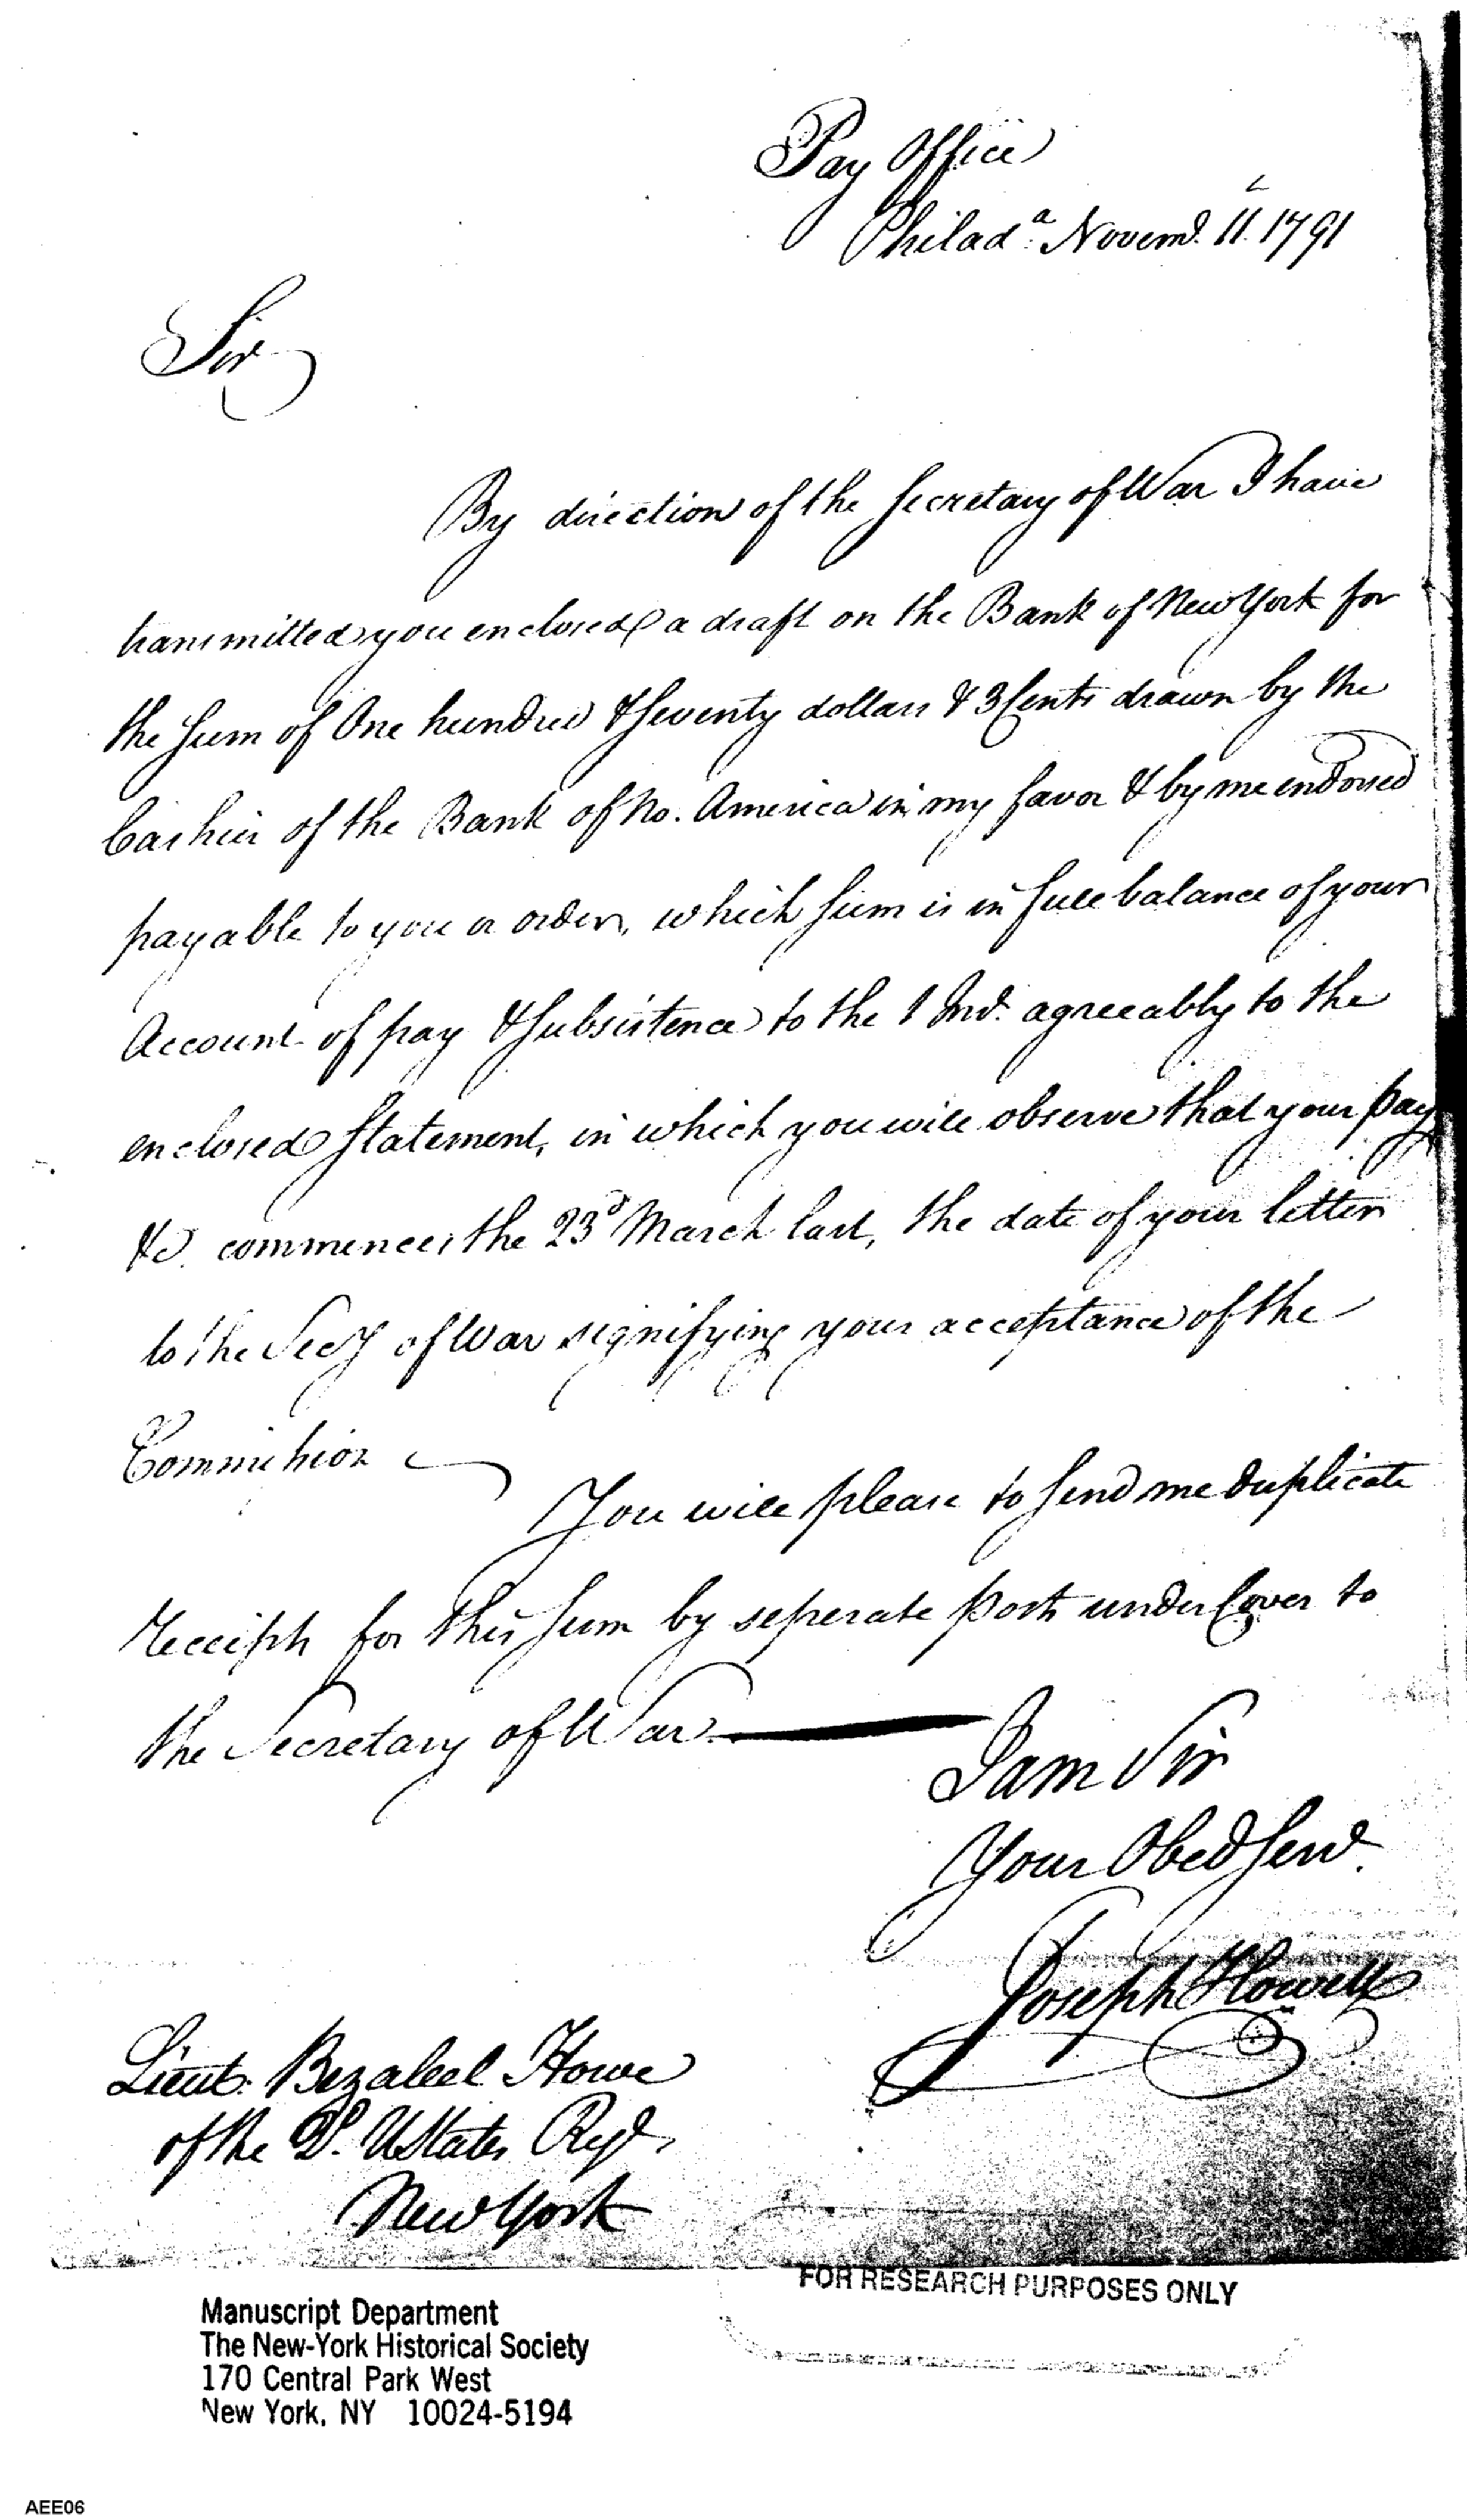 Pay Office
Philad.a Novemr. 11. 1791
Sir
By direction of the Secretary of War I have
transmitted you enclosed a draft on the Bank of New York for
the Sum of One hundred & Seventy dollars & 3 Cents drawn by the
Cashier of the Bank of No. America in my favor & by me endorsed
payable to you or order, which Sum is in full balance of your
Account of pay & Subsistence to the 1 Inst. agreeably to the
enclosed Statement, in which you will observe that your pay
&c. commences the 23d March last, the date of your letter
to the Secy of War signifying your acceptance of the
Commission
You will please to Send me duplicate
receipts for this Sum by seperate posts under Cover to
the Secretary of War
I am Sir
Your Obed Servt.
Joseph Howell
Lieut. Bezaleel Howe
of the 2d. U States Regt.
New York
FOR RESEARCH PURPOSES ONLY
Manuscript Department
The New-York Historical Society
170 Central Park West
New York, NY 10024-5194
AEE06